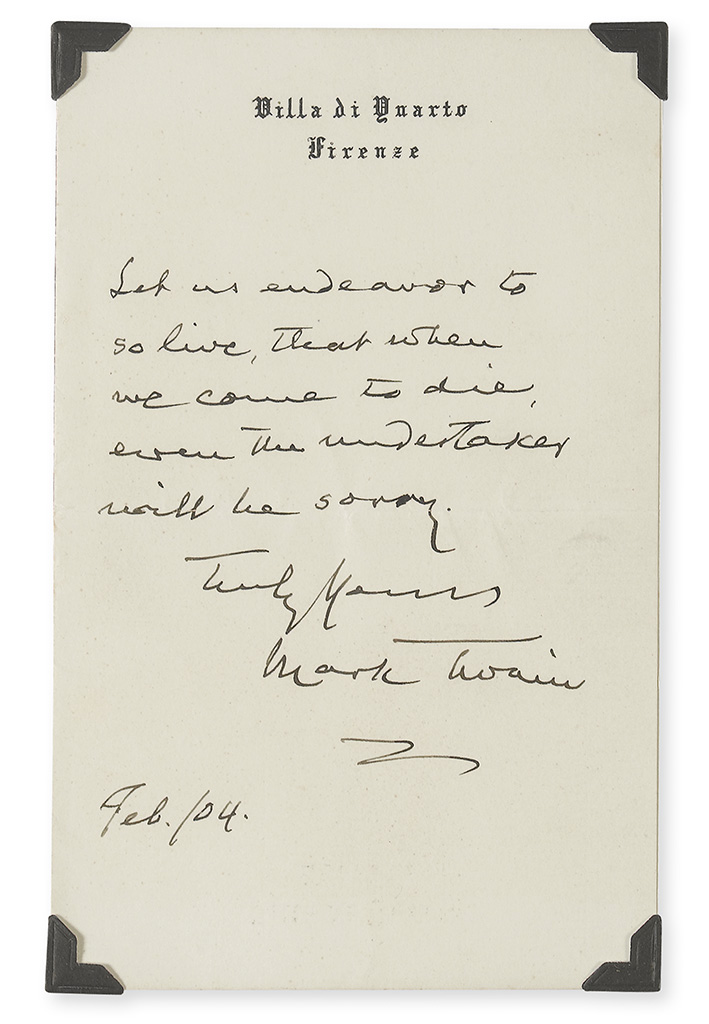 Villa di Quarto
Firenze
Let us endeavor to
so live, that when
we come to die,
even the undertaker
will be sorry.
Truly Yours
Mark Twain
Feb./04.